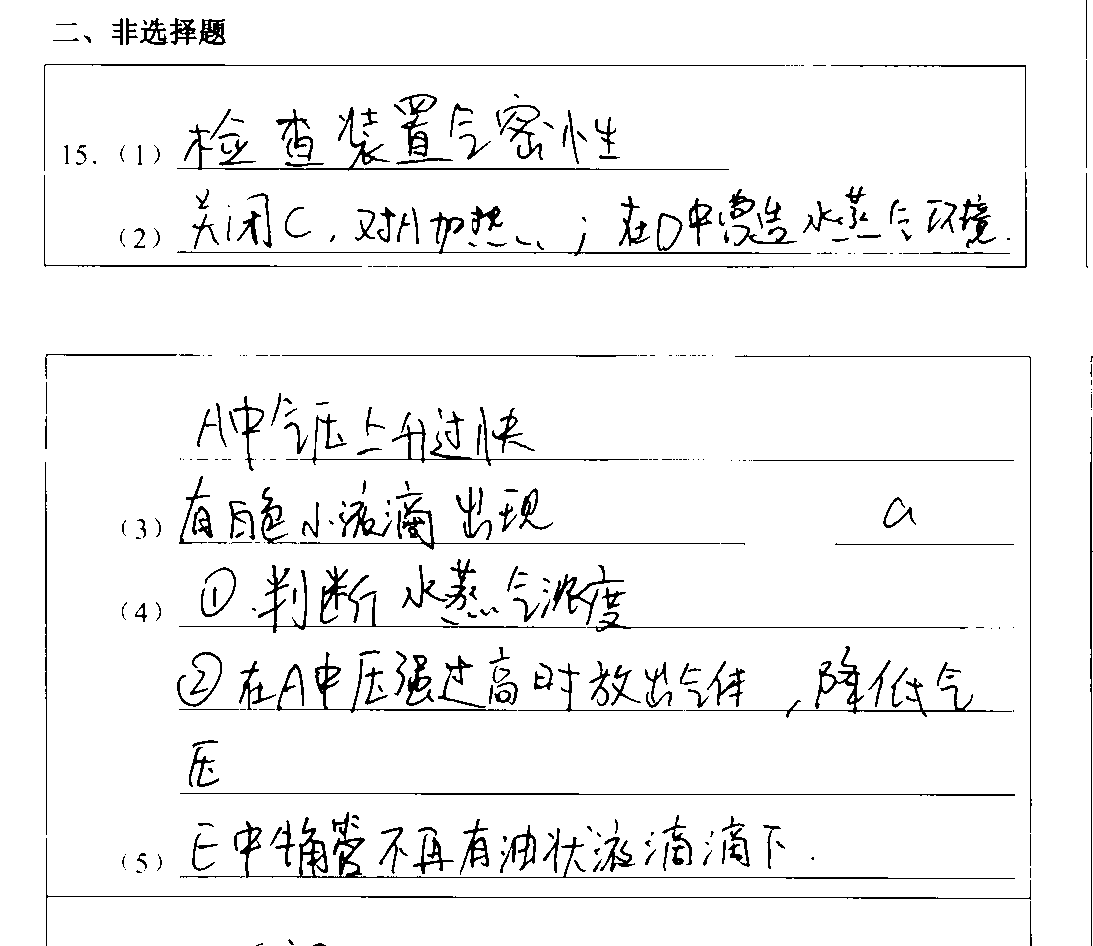 二、非选择题
15.（1）检查装置气密性
（2）关闭C，对A加热；在D中营造水蒸气环境.
A中气压上升过快
（3）有白色小液滴出现 a
（4）①.判断水蒸气浓度
②在A中压强过高时放出气体，降低气
压
（5）E中牛角管不再有油状液滴滴下.